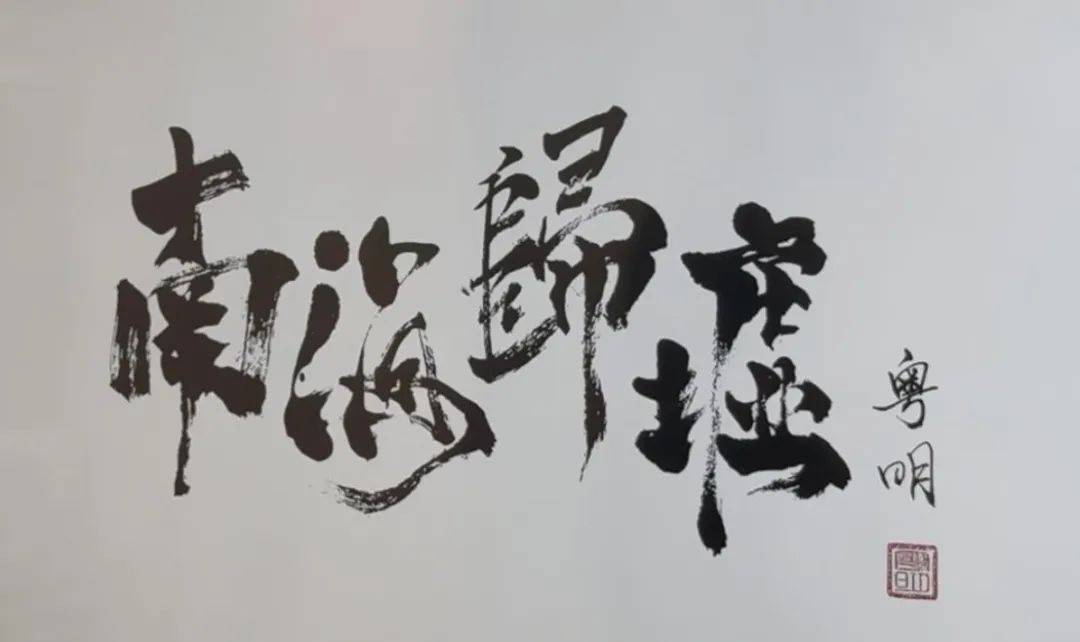 南海歸墟
粤明